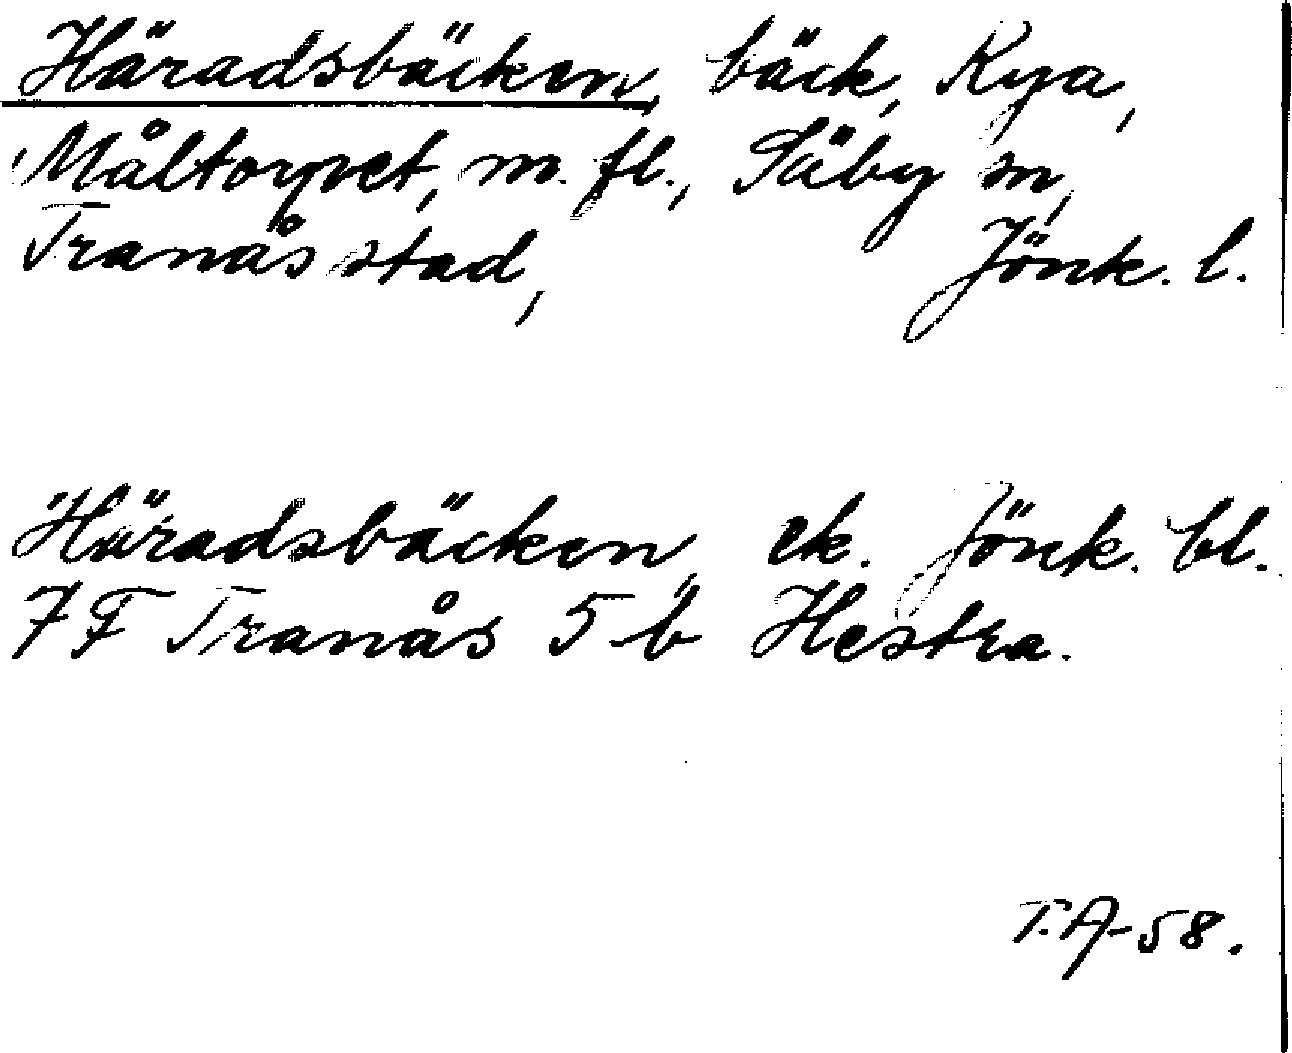 Häradsbäcken, bäck, Rya,
Måltorpet, m. fl., Säby sn,
Tranås stad, Jönk. l.
Häradsbäcken, ek. Jönk. bl.
7 F Tranås 5 b Hestra.
T.A-58.